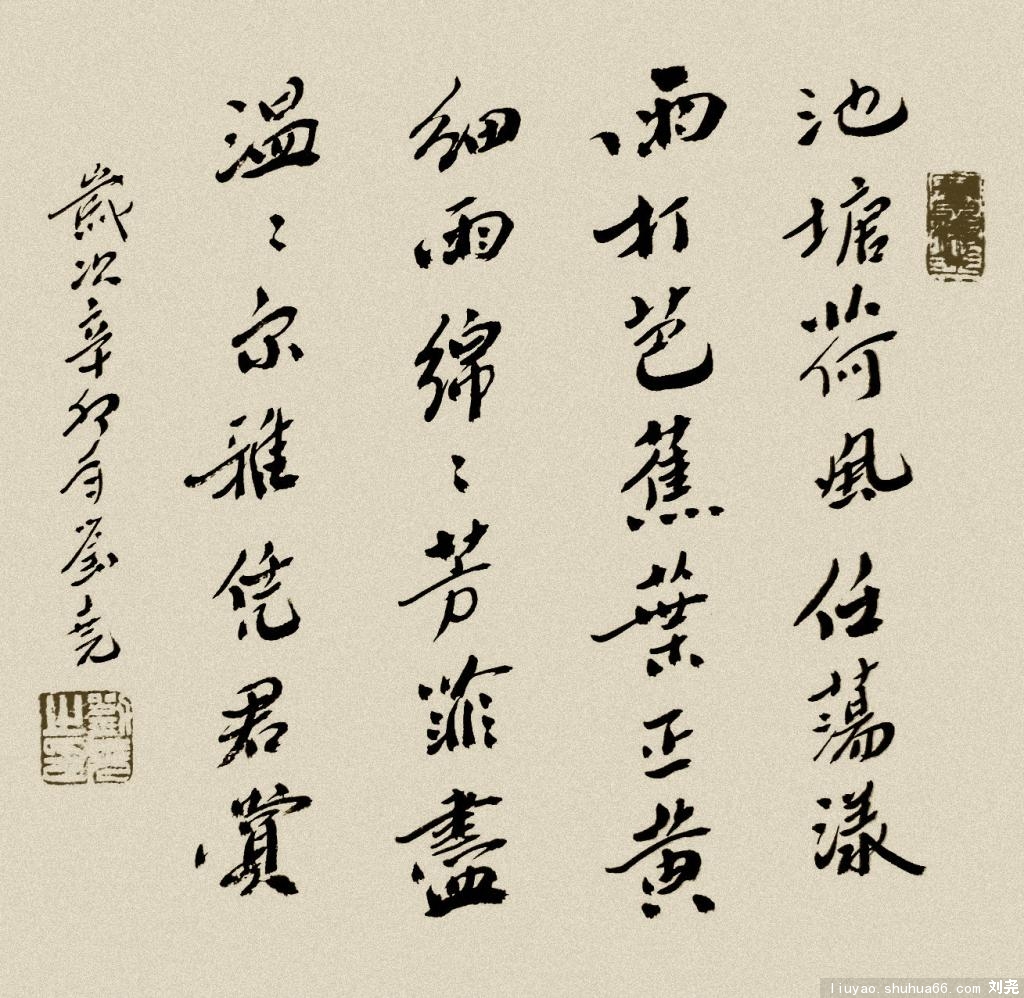 池塘荷風任蕩漾
雨打芭蕉葉正黄
細雨綿〻芳菲盡
温〻宗雅凭君賞
歲次辛卯年劉堯
liuyao.shuhua66.com 刘尧